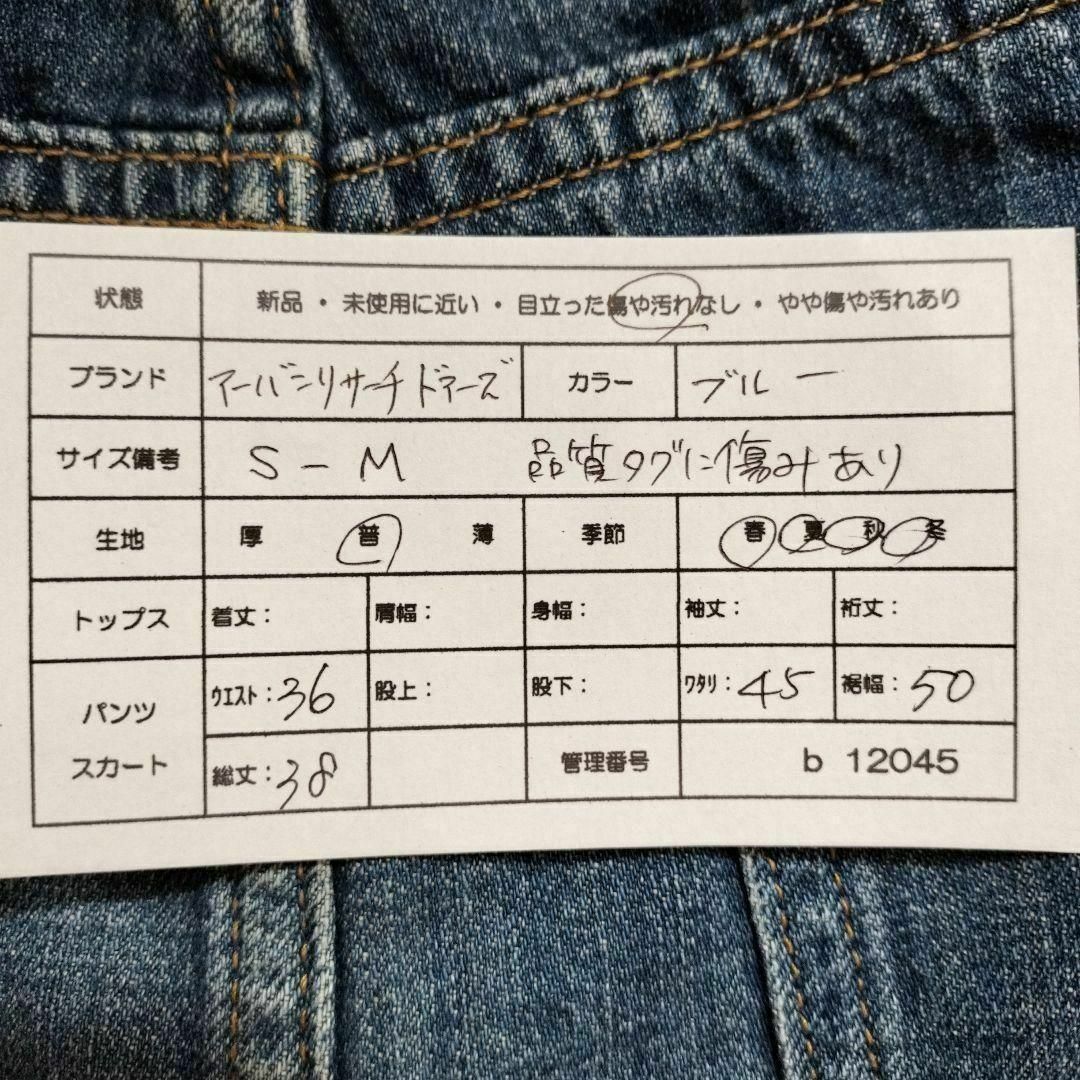 状態 新品 ・ 未使用に近い ・ 目立った傷や汚れなし ・ やや傷や汚れあり
ブランド アーバンリサーチドアーズ カラー ブルー
サイズ備考 S - M 品質タグに傷みあり
生地 厚 普 薄 季節 春 夏 秋 冬
トップス 着丈: 肩幅: 身幅: 袖丈: 裄丈:
パンツ ウエスト:36 股上: 股下: ワタリ:45 裾幅:50
スカート 総丈:38 管理番号 b 12045